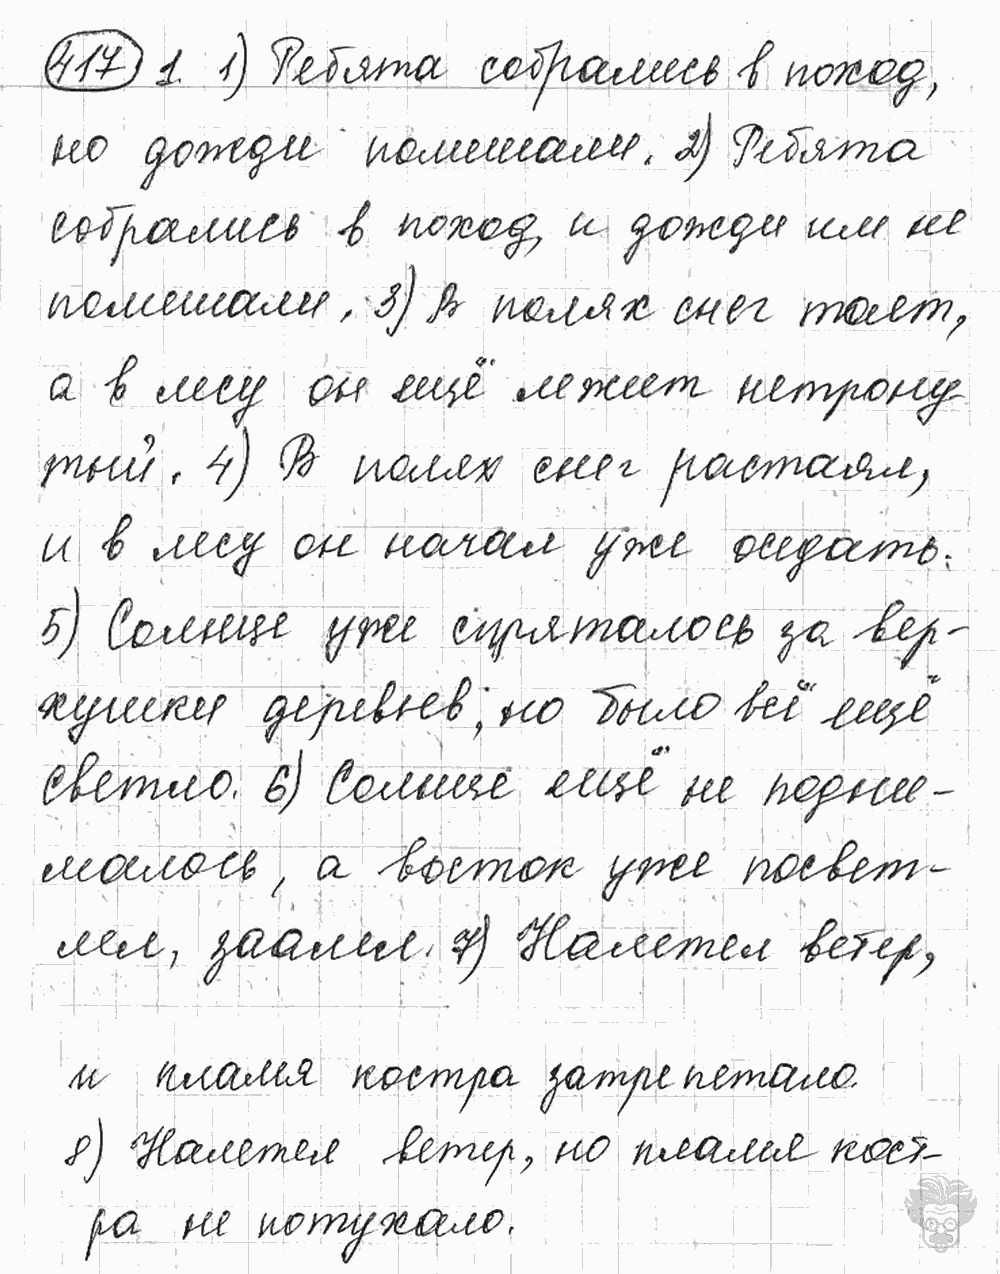 417 1. 1) Ребята собрались в поход,
но дожди помешали. 2) Ребята
собрались в поход, и дожди им не
помешали. 3) В полях снег тает,
а в лесу он ещё лежит нетрону-
тый. 4) В полях снег растаял,
и в лесу он начал уже оседать.
5) Солнце уже спряталось за вер-
хушки деревьев, но было всё ещё
светло. 6) Солнце ещё не подни-
малось, а восток уже посвет-
лел, заалел. 7) Налетел ветер,
и пламя костра затрепетало.
8) Налетел ветер, но пламя кост-
ра не потухало.